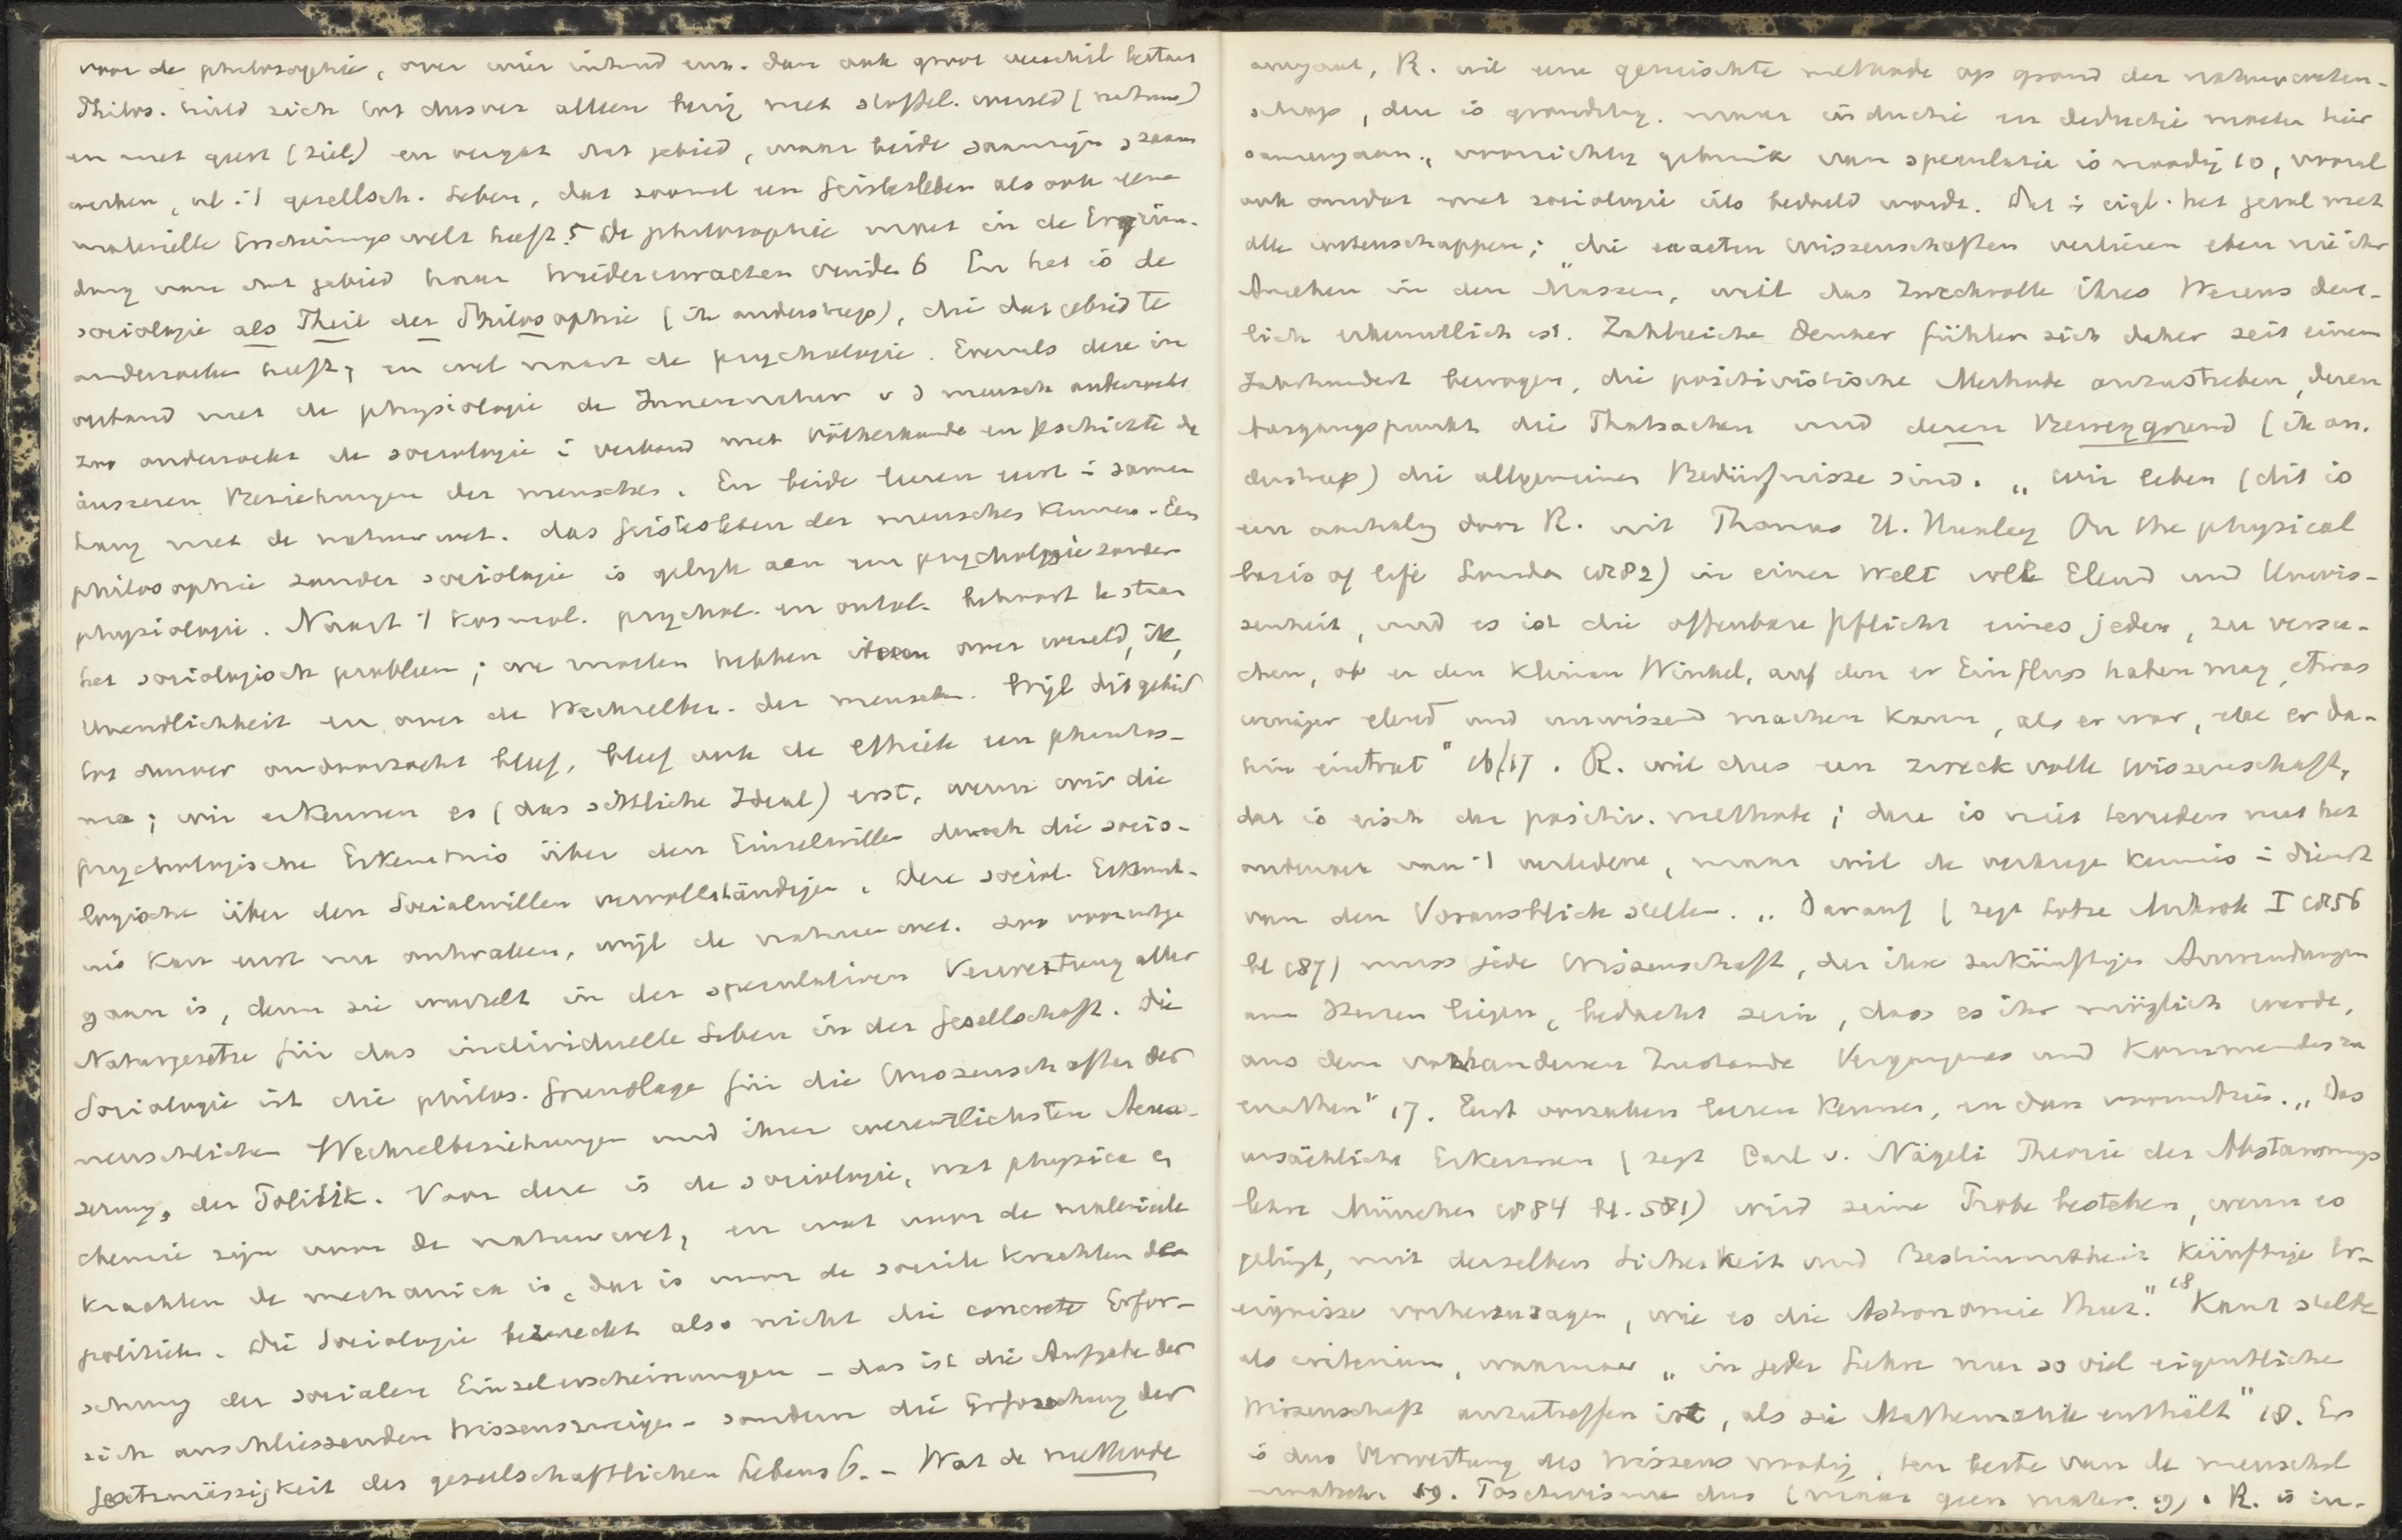 voor de philosophie, over wier inhoud enz. dan ook groot verschil bestaat
Philos. hield zich tot dusver alleen bezig met stoffel. wereld (natuur)
en met geest (ziel) en vergat dat gebied, waar beide saamzijn, saam
werken, nl. i/h gesellsch. Leben, dat zoowel een Geistesleben als ook eene
materielle Erscheinungswelt heeft 5 De philosophie moet in de Ergrün-
dung van dat gebied haar Wiedererwachen vinden 6 En het is de
sociologie als Theil der Philosophie (ik onderstreep), die dat gebied te
onderzoeken heeft, en wel naast de psychologie. Evenals deze in
verband met de physiologie de Innennatur v d mensch onderzoekt
zoo onderzoekt de sociologie i verband met Völkerkunde en Geschichte de
äusseren Beziehungen der menschen. En beide leeren eerst i samen
hang met de natuurwet. das Geistesleben der menschen kennen. Een
philosophie zonder sociologie is gelijk aan een psychologie zonder
physiologie. Naast 't kosmol. psychol. en ontol. behoort te staan
het sociologisch probleem; we moeten hebben ideeen over wereld, ik,
Unendlichkeit en over de Wechselbez. der menschen. Wijl dit gebied
tot dusver ononderzocht bleef, bleef ook de Ethiek een phantas-
ma; wir erkennen es (das sittliche Ideal) erst, wenn wir die
psychologische Erkenntnis über den Einzelwillen durch die socio-
logische über den Socialwillen vervollständigen. Deze sociol. Erkennt-
nis kan eerst nu ontwaken, wijl de natuurwet. zoo vooruitge
gaan is, denn sie wurzelt in der speculativen Verwertung aller
Naturgesetze für das individuelle Leben in der Gesellschaft. Die
Sociologie ist die philos. Grundlage für die Wissenschaften der
menschlichen Wechselbeziehungen und ihrer wesentlichsten Aeus-
serung, der Politik. Voor deze is de sociologie, wat physica en
chemie zijn voor de natuurwet, en wat voor de materieele
krachten de mechanica is, dat is voor de sociale krachten de
politiek. Die Sociologie bezweckt also nicht die concrete Erfor-
schung der socialen Einzelerscheinungen – das ist die Aufgabe der
sich anschliessenden Wissenszweige – sondern die Erforschung der
Gesetzmässigkeit des gesellschaftlichen Lebens 6. – Wat de methode
aangaat, R. wil eene gemischte methode op grond der natuurweten-
schap, deze is grondleg. maar inductie en deductie moeten hier
samengaan, voorzichtig gebruik van speculatie is noodig 10, vooral
ook omdat met sociologie iets bedoeld wordt. Dat is eigl. het geval met
alle wetenschappen; "die exacten Wissenschaften verlieren eben nie ihr
Ansehen in den Massen, weil das Zweckvolle ihres Wesens deut-
lich erkenntlich ist. Zahlreiche Denker fühlen sich daher seit einem
Jahrhundert bewogen, die positivistische Methode anzustreben, deren
Ausgangspunkt die Thatsachen und deren Beweggrund (ik on-
derstreep) die allgemeinen Bedürfnisse sind. „Wir leben (dit is
een aanhaling door R. uit Thomas H. Huxley On the physical
basis of life London 1882) in einer Welt voll Elend und Unwis-
senheit, und es ist die offenbare Pflicht eines jeden, zu versu-
chen, ob er den kleinen Winkel, auf den er Einfluss haben mag, etwas
weniger elend und unwissend machen kann, als er war, ehe er da-
hin eintrat" 16/17. R. wil dus een zweckvolle Wissenschaft,
dat is eisch der positiv. methode; deze is niet tevreden met het
ontdekken van 't verledene, maar wil de verkregen kennis i dienst
van den Vorausblick stellen. „Darauf (zegt Lotze Mikrok I 1856
bl 187) muss jede Wissenschaft, der ihre zukünftigen Anwendungen
am Herzen liegen, bedacht sein, dass es ihr möglich werde,
aus dem vorhandenen Zustande Vergangenes und Kommendes zu
errathen" 17. Eerst oorzaken leeren kennen, en dan vooruitzien. „Das
ursächliche Erkennen (zegt Carl v. Nägeli Theorie der Abstammungs
lehre München 1884 bl. 581) wird seine Probe bestehen, wenn es
gelingt, mit derselben Sicherkeit und Bestimmtheit künftige Er-
eignisse vorherzusagen, wie es die Astronomie thut." 18 Kant stelde
als criterium, waarnaar „in jeder Lehre nur so viel eigentliche
Wissenschaft anzutreffen ist, als sie Mathematik enthält" 18. Er
is dus Verwertung des Wissens noodig, ten beste van de menschel
maatsch. 19. Positivisme dus (maar geen mater. 9). R. is in-